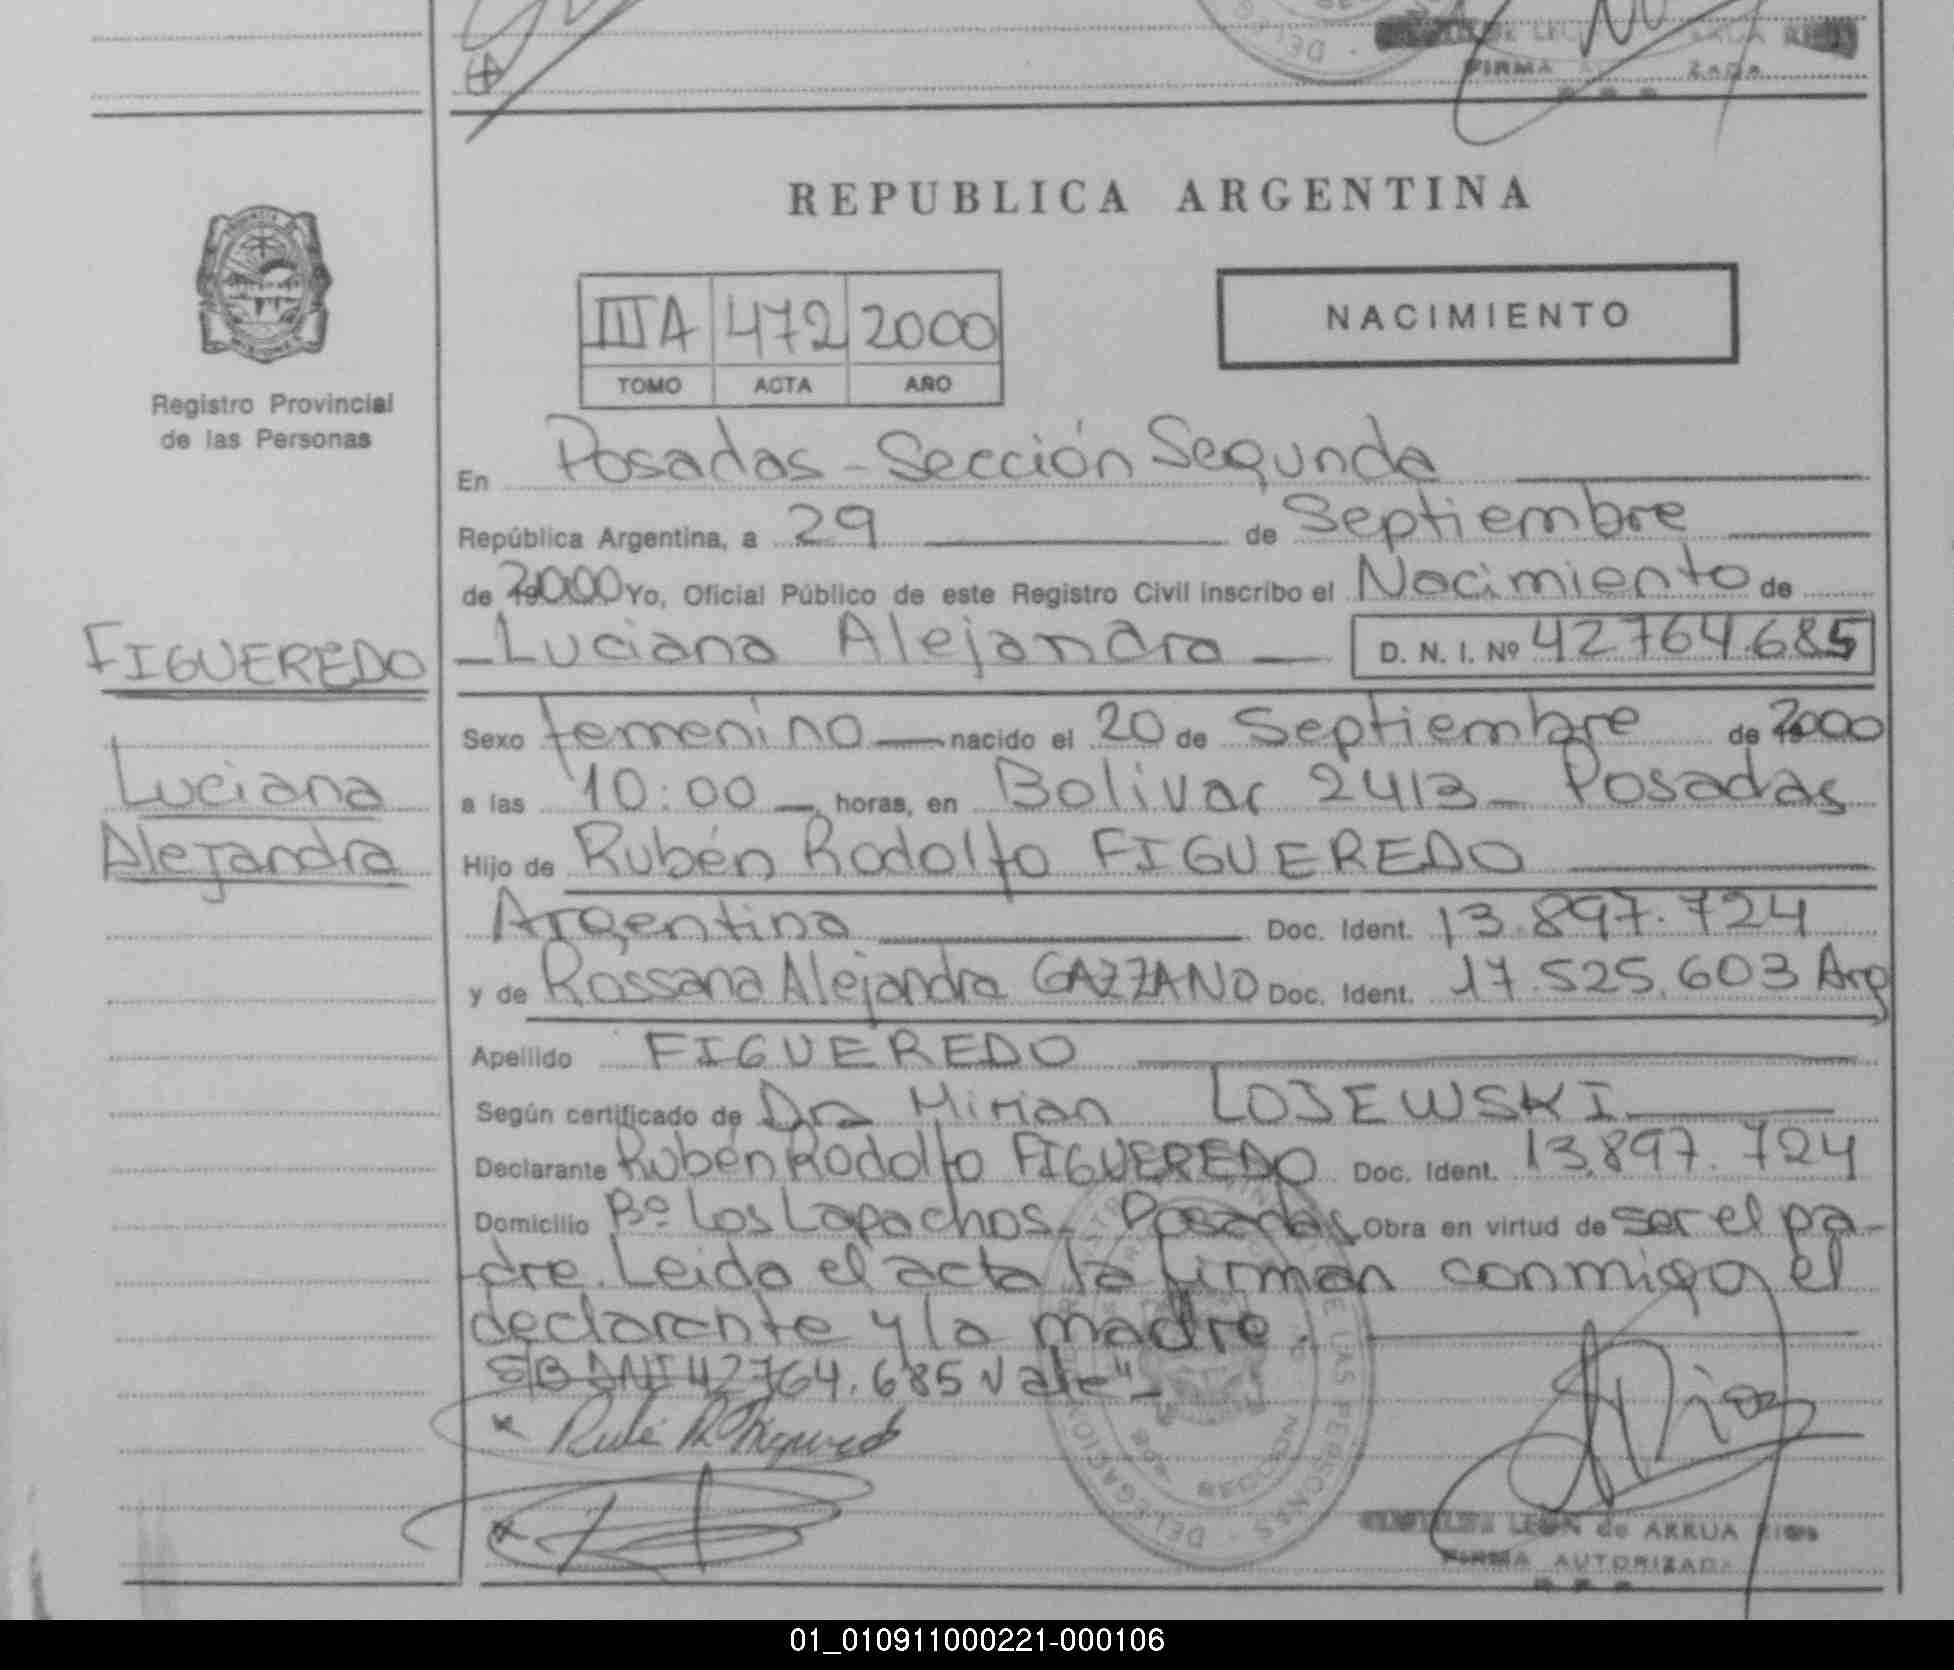 FIRMA
REPUBLICA ARGENTINA
IIIA 472 2000
TOMO ACTA AÑO
NACIMIENTO
Registro Provincial
de las Personas
En Posadas - Sección Segunda
República Argentina, a 29 de Septiembre
de 2000 Yo, Oficial Público de este Registro Civil inscribo el Nacimiento de
Luciana Alejandra D. N. I. Nº 42764.685
FIGUEREDO
Luciana
Alejandra
Sexo femenino nacido el 20 de Septiembre de 2000
a las 10:00 horas, en Bolivar 2413 - Posadas
Hijo de Rubén Rodolfo FIGUEREDO
Argentina Doc. Ident. 13.897.724
y de Rossana Alejandra GAZZANO Doc. Ident. 17.525.603 Arg
Apellido FIGUEREDO
Según certificado de Dra Mirian LOJEWSKI
Declarante Rubén Rodolfo FIGUEREDO Doc. Ident. 13.897.724
Domicilio Bº Los Lapachos - Posadas Obra en virtud de ser el pa-
dre. Leida el acta la firman conmigo el
declarante y la madre.
S/B DNI 42764.685 Vale"-
LEON de ARRUA RIOS
FIRMA AUTORIZADA
01_010911000221-000106